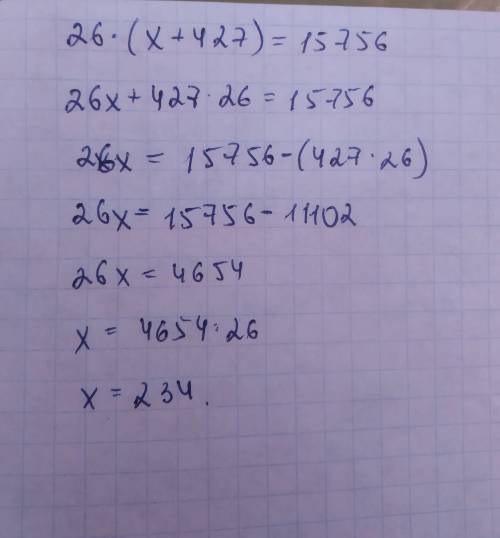 26 · (x + 427) = 15756
26x + 427 · 26 = 15756
26x = 15756 - (427 · 26)
26x = 15756 - 11102
26x = 4654
x = 4654 : 26
x = 234.